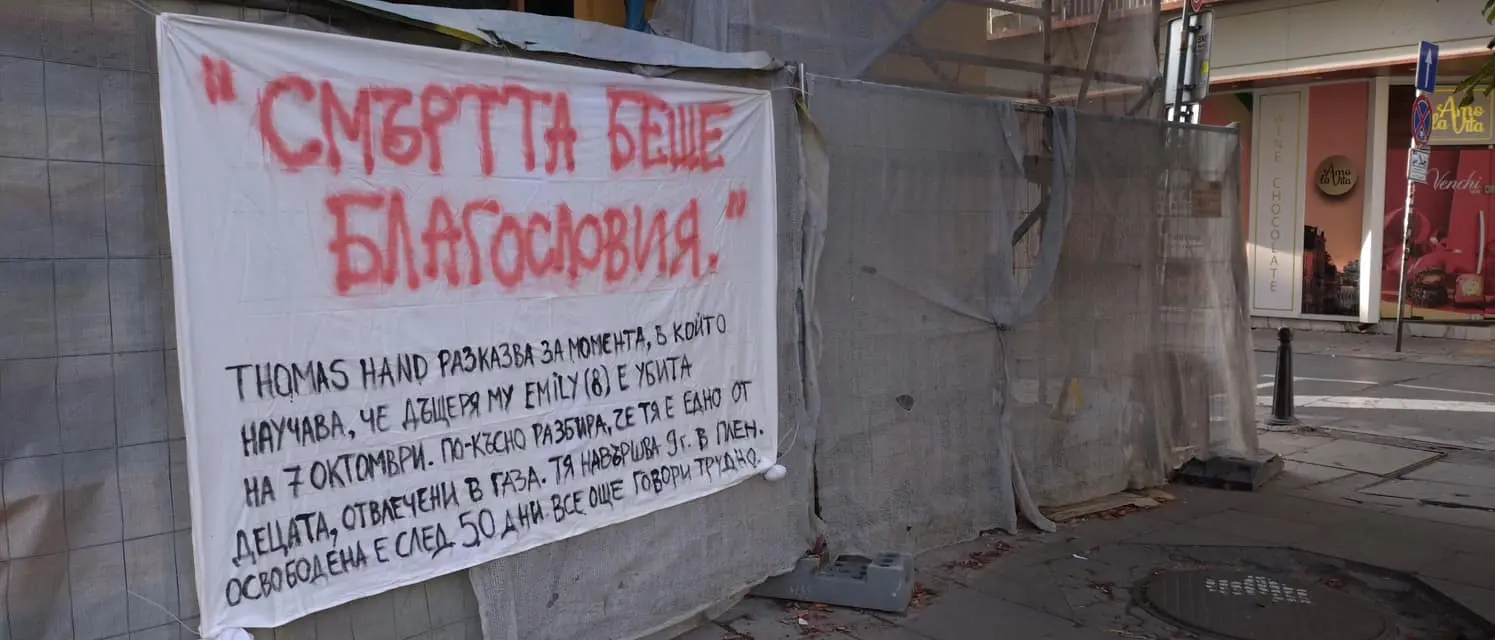 "СМЪРТТА БЕШЕ
БЛАГОСЛОВИЯ."
THOMAS HAND РАЗКАЗВА ЗА МОМЕНТА, В КОЙТО
НАУЧАВА, ЧЕ ДЪЩЕРЯ МУ EMILY (8) Е УБИТА
НА 7 ОКТОМВРИ. ПО-КЪСНО РАЗБИРА, ЧЕ ТЯ Е ЕДНО ОТ
ДЕЦАТА, ОТВЛЕЧЕНИ В ГАЗА. ТЯ НАВЪРШВА 9 г. В ПЛЕН.
ОСВОБОДЕНА Е СЛЕД 50 ДНИ. ВСЕ ОЩЕ ГОВОРИ ТРУДНО.
WINE CHOCOLATE
Amo
la Vita
Amo
la Vita
Venchi